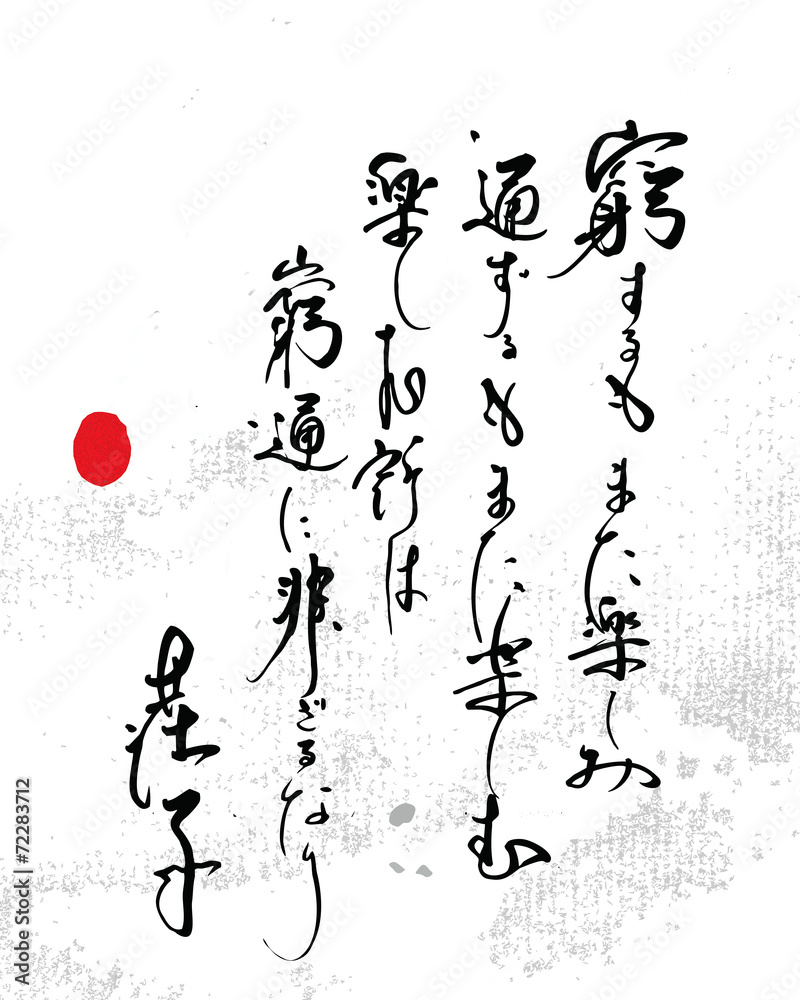 窮するもまた楽しみ
通ずるもまた楽しむ
楽しむ所は
窮通に非ざるなり
荘子
Adobe Stock | #72283712